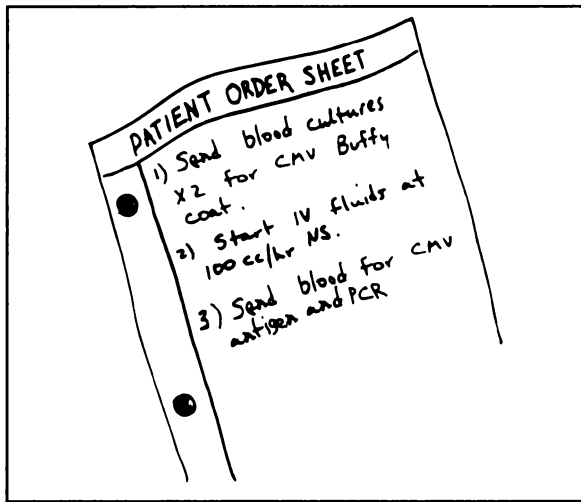 PATIENT ORDER SHEET
1) Send blood cultures
x2 for CMV Buffy
coat.
2) Start IV fluids at
100 cc/hr NS.
3) Send blood for CMV
antigen and PCR